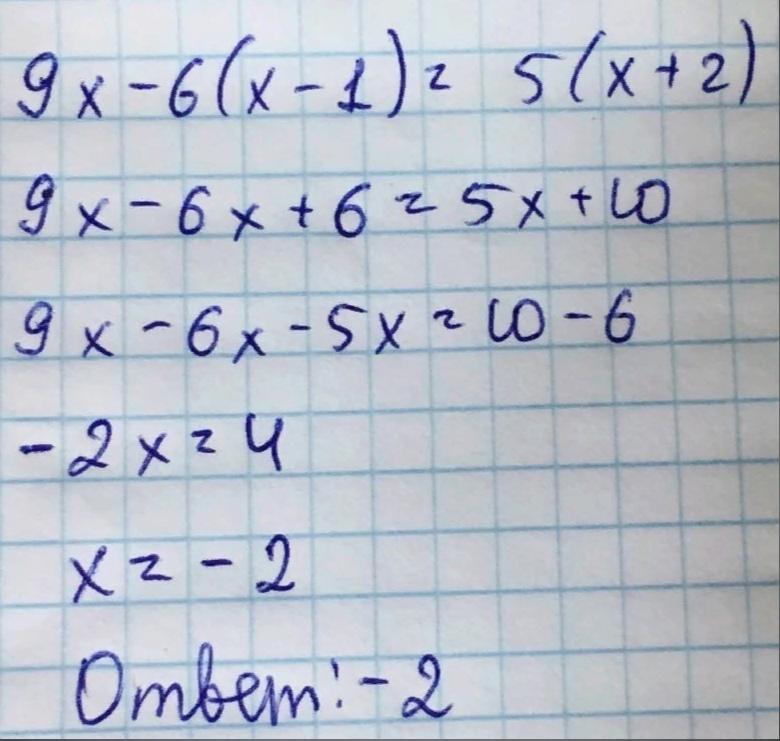 9x - 6(x - 1) = 5(x + 2)
9x - 6x + 6 = 5x + 10
9x - 6x - 5x = 10 - 6
-2x = 4
x = -2
Ответ: -2